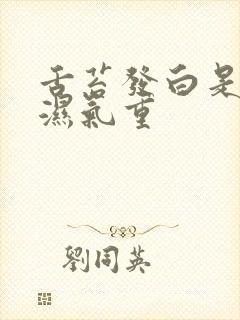 舌苔發白是
濕氣重
劉同英